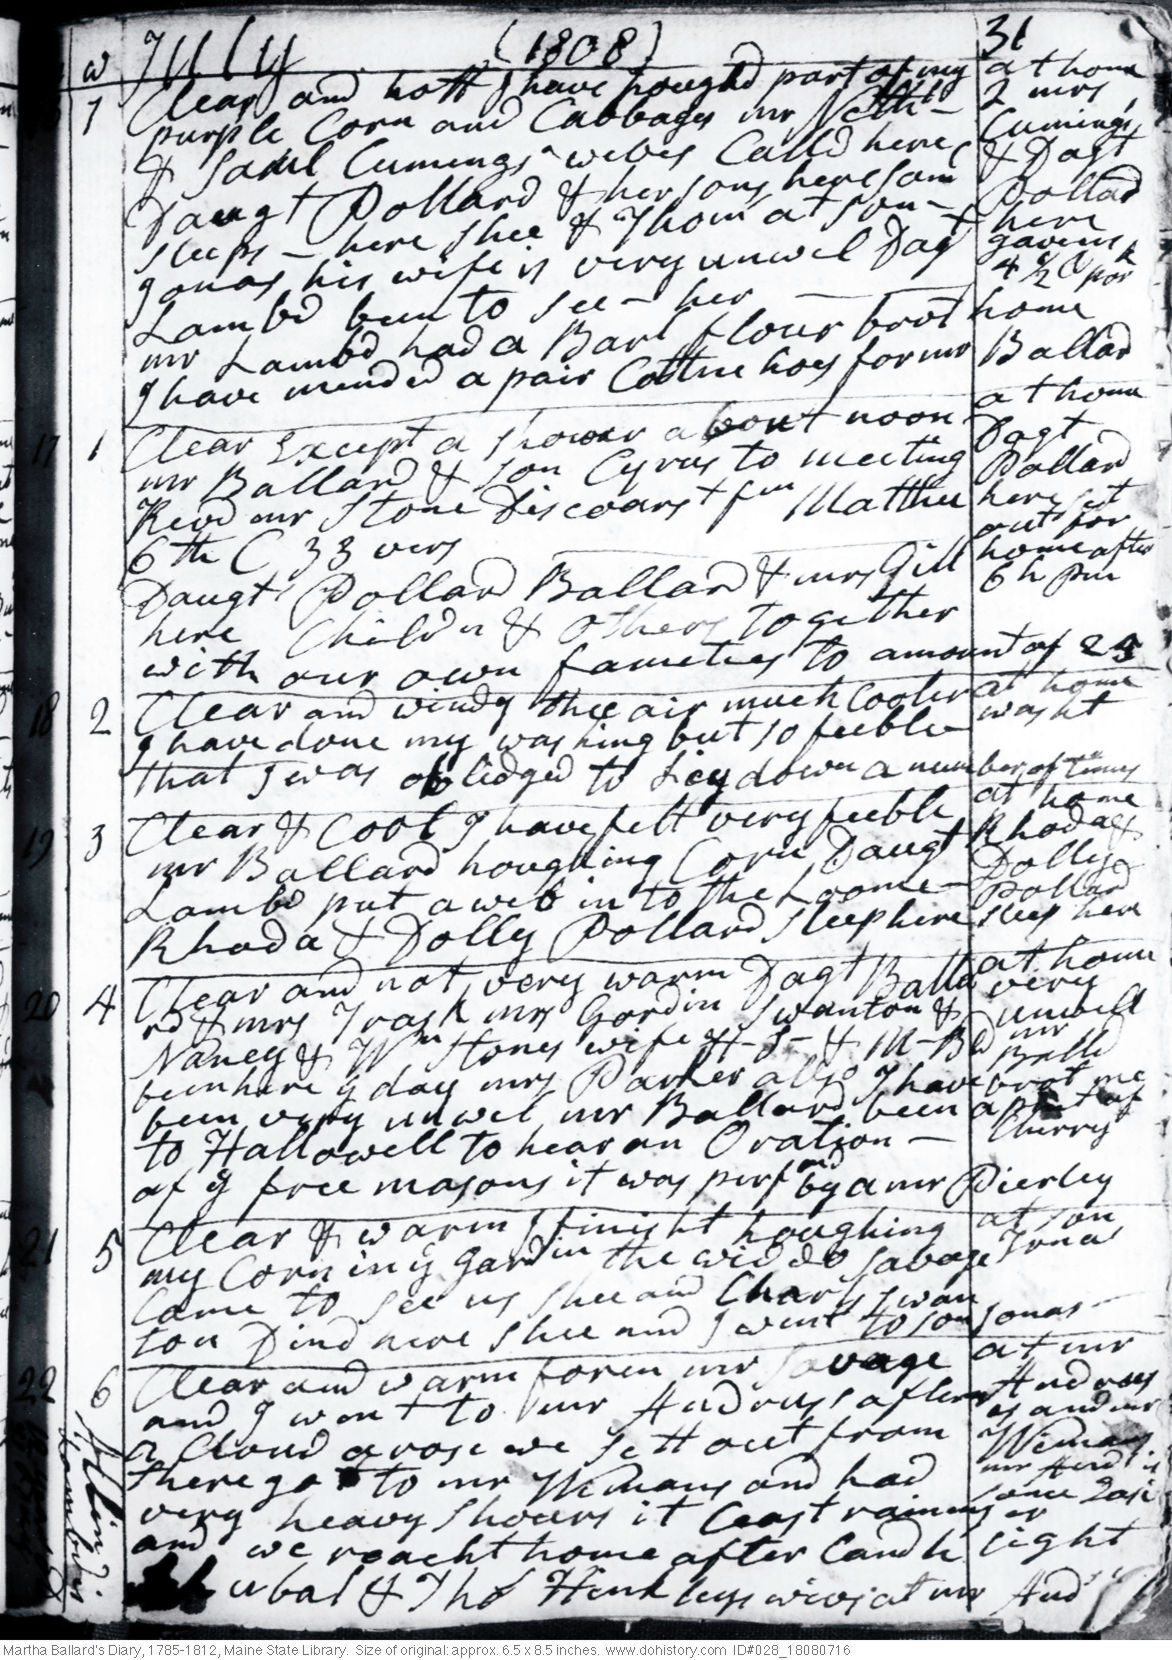 w July (1808) 31
7 Clear and hott I have houghd part of my
purple Corn and Cabbages mr Nathl
& Saml Cumings wives Calld here
Daugt Pollard & her sons here Saml
sleeps - here shee & Thom at son
Jonas his wife is very unwel Dagt
Lambd been to see - her
mr Lambd had a Barl flour brot home
I have mended a pair Cottne hoes for mr Ballard
at home
2 mrs
Cumings
& Dagt
Pollard
here
gave us
4 1/2 lb por
17 1 Clear Except a shower about noon
mr Ballard & son Cyrus to meeting
Revd mr Stone Discoarst fm Matthu
6th C 33 vers
Daugt Pollard Ballard & mrs Gill
here Childn & others together
with our own fameties to amount of 25
at home
Dagt
Pollard
here set
out for
home after
6 h pm
18 2 Clear and windy thee air much Cooler
I have done my washing but so feeble
that I was obledged to Ley down a number of times
at home
washt
19 3 Clear & Cool I have felt very feeble
mr Ballard houghing Corn Daugt
Lambd put a web in to the Loome
Rhoda & Dolly Pollard sleep here
at home
Rhoda &
Dolly
Pollard
sleep here
20 4 Clear and not very warm Dagt Balla
rd & mrs Trask mrs Gordin Swanton &
Nancy & Wm Stones wife H-S- & M-Bd
been here ye day mrs Parker allso I have
been very unwel mr Ballard been
to Hallowell to hear an Oration -
of ye free masons it was perfmd by a mr Pierley
at home
very
unwell
mr
Balld
brot me
a pint of
Cherry
21 5 Clear & warm I finisht houghing
my Corn in ye gardin the widdo Savage
Came to see us shee and Charls swan
ton Dind here shee and I went to son Jonas
at son
Jonas
22 6 Clear and warm foren mr Savage
and I went to mr Andruss aftern
a Cloud arose we sett out from
there go to mr Wimans and had
very heavy shours it Ceast raining
and we reacht home after Candle light
at mr
Andruss
es and mr
Wimans
mr And is
&
Tho Hinkleys wives at mr And
Martha Ballard's Diary, 1785-1812, Maine State Library. Size of original: approx. 6.5 x 8.5 inches. www.dohistory.com ID#028_18080716